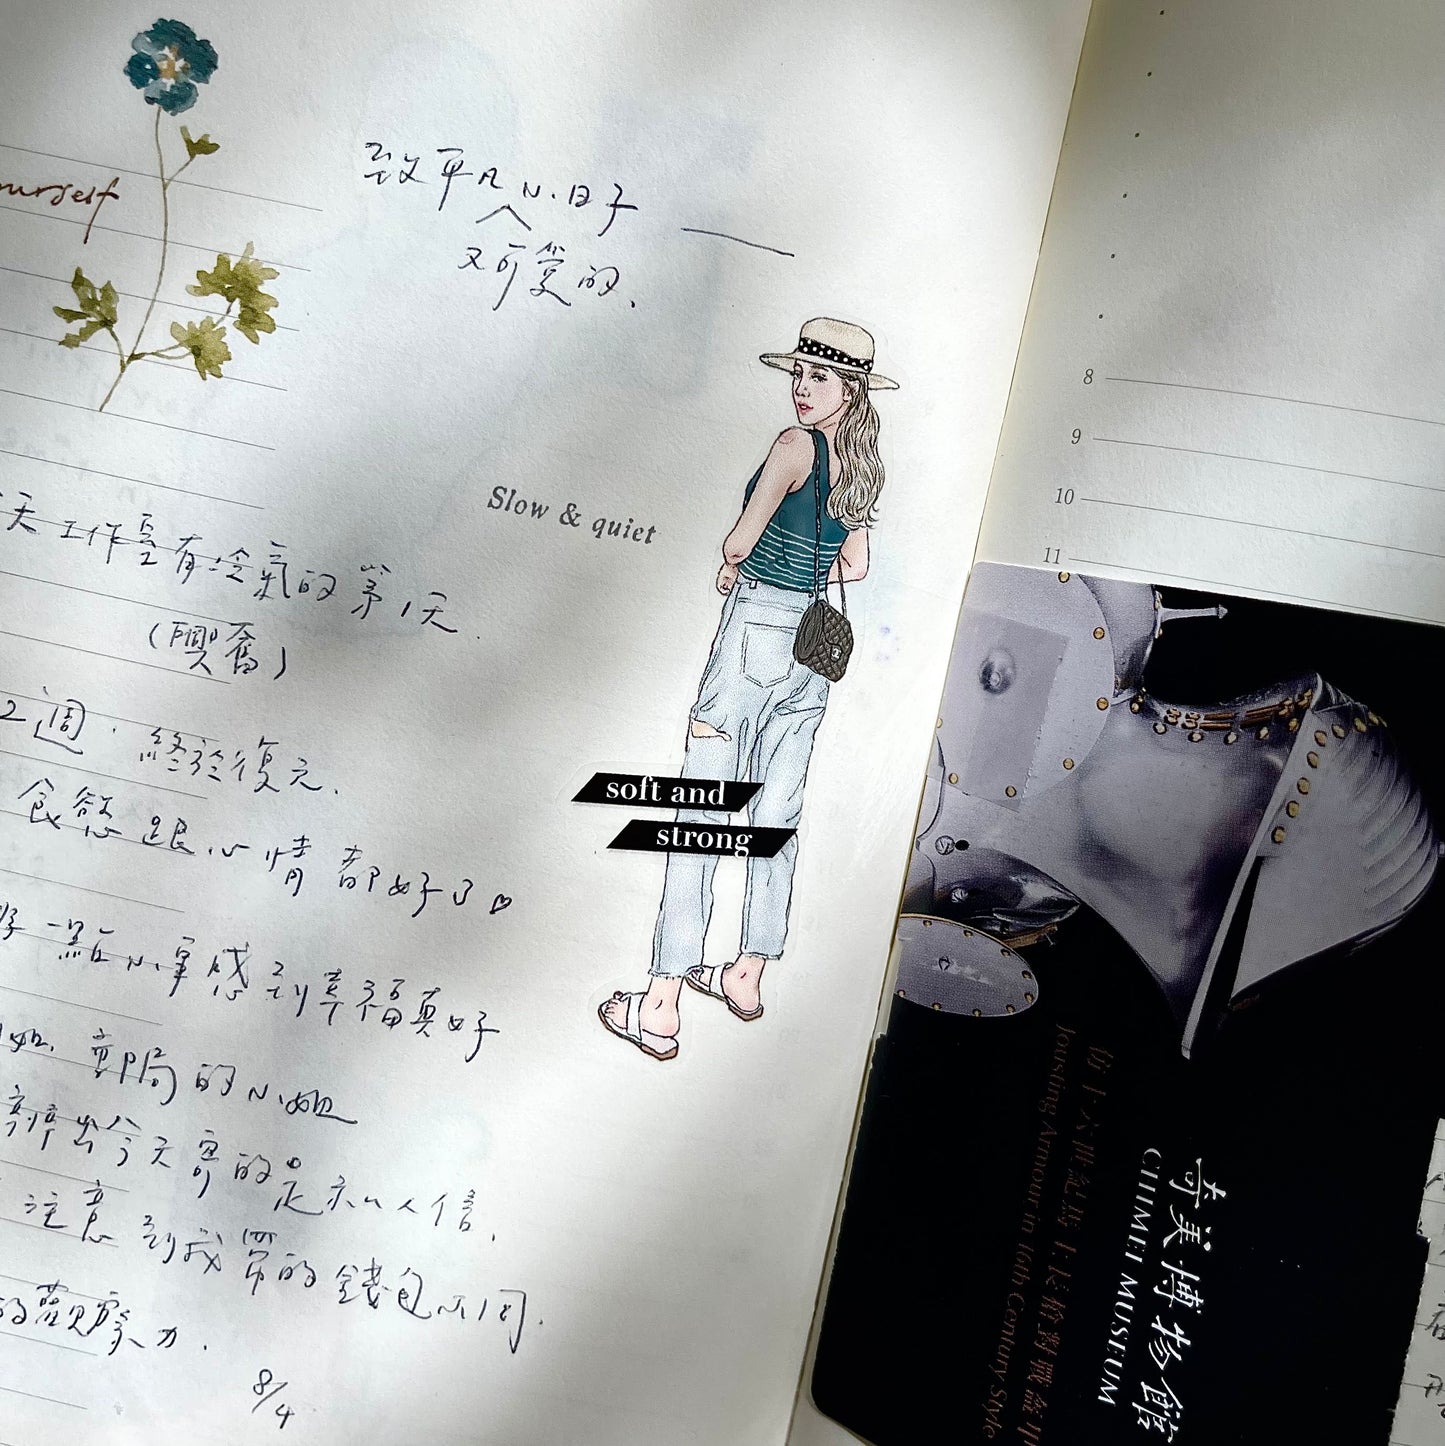 致平凡小日子
又可愛的、
yourself
Slow & quiet
天工作室有冷氣的第1天.
(興奮)
2週.終於復元.
食慾跟心情都好了♡
一點小事感到幸福真好
郵局的小姐
出今天寄的是私人信.
注意到我買的錢包不同.
的觀察力.
8/4
soft and
strong
8
9
10
11
仿十六世紀馬上長槍對戰盔甲
Jousting Armour in 16th Century Style
奇美博物館
CHIMEI MUSEUM